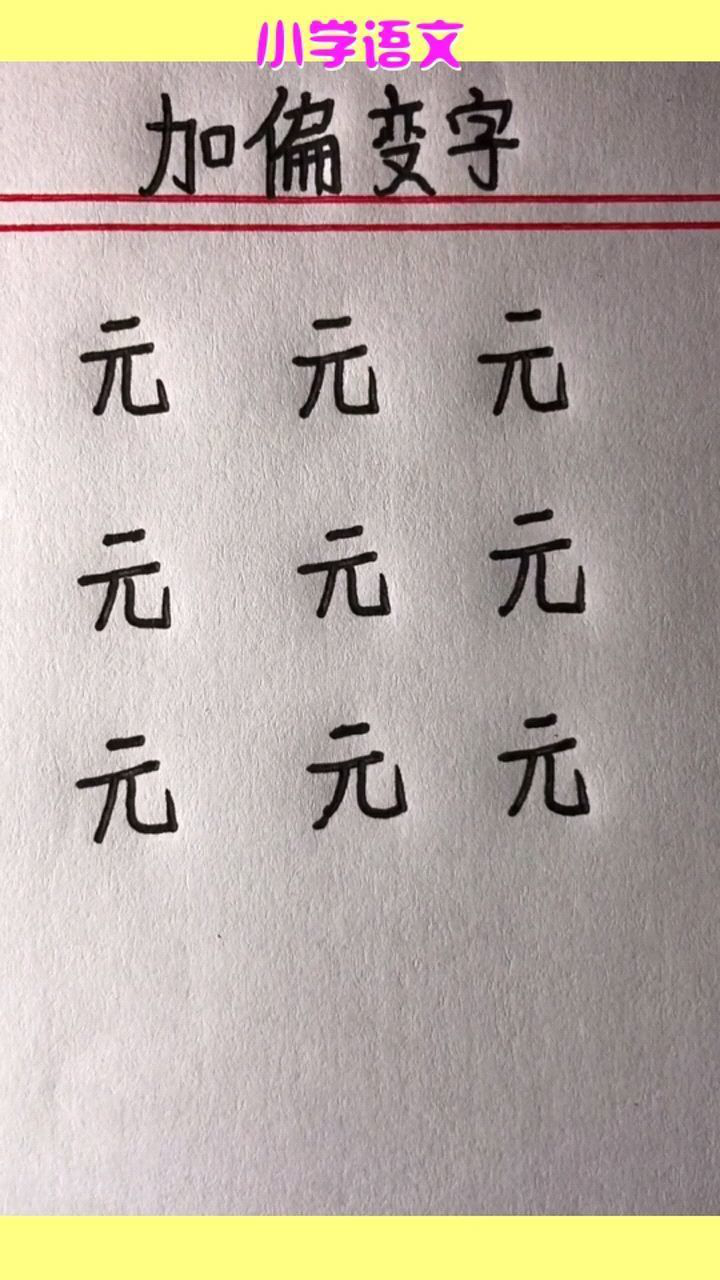 小学语文
加偏变字
元 元 元
元 元 元
元 元 元